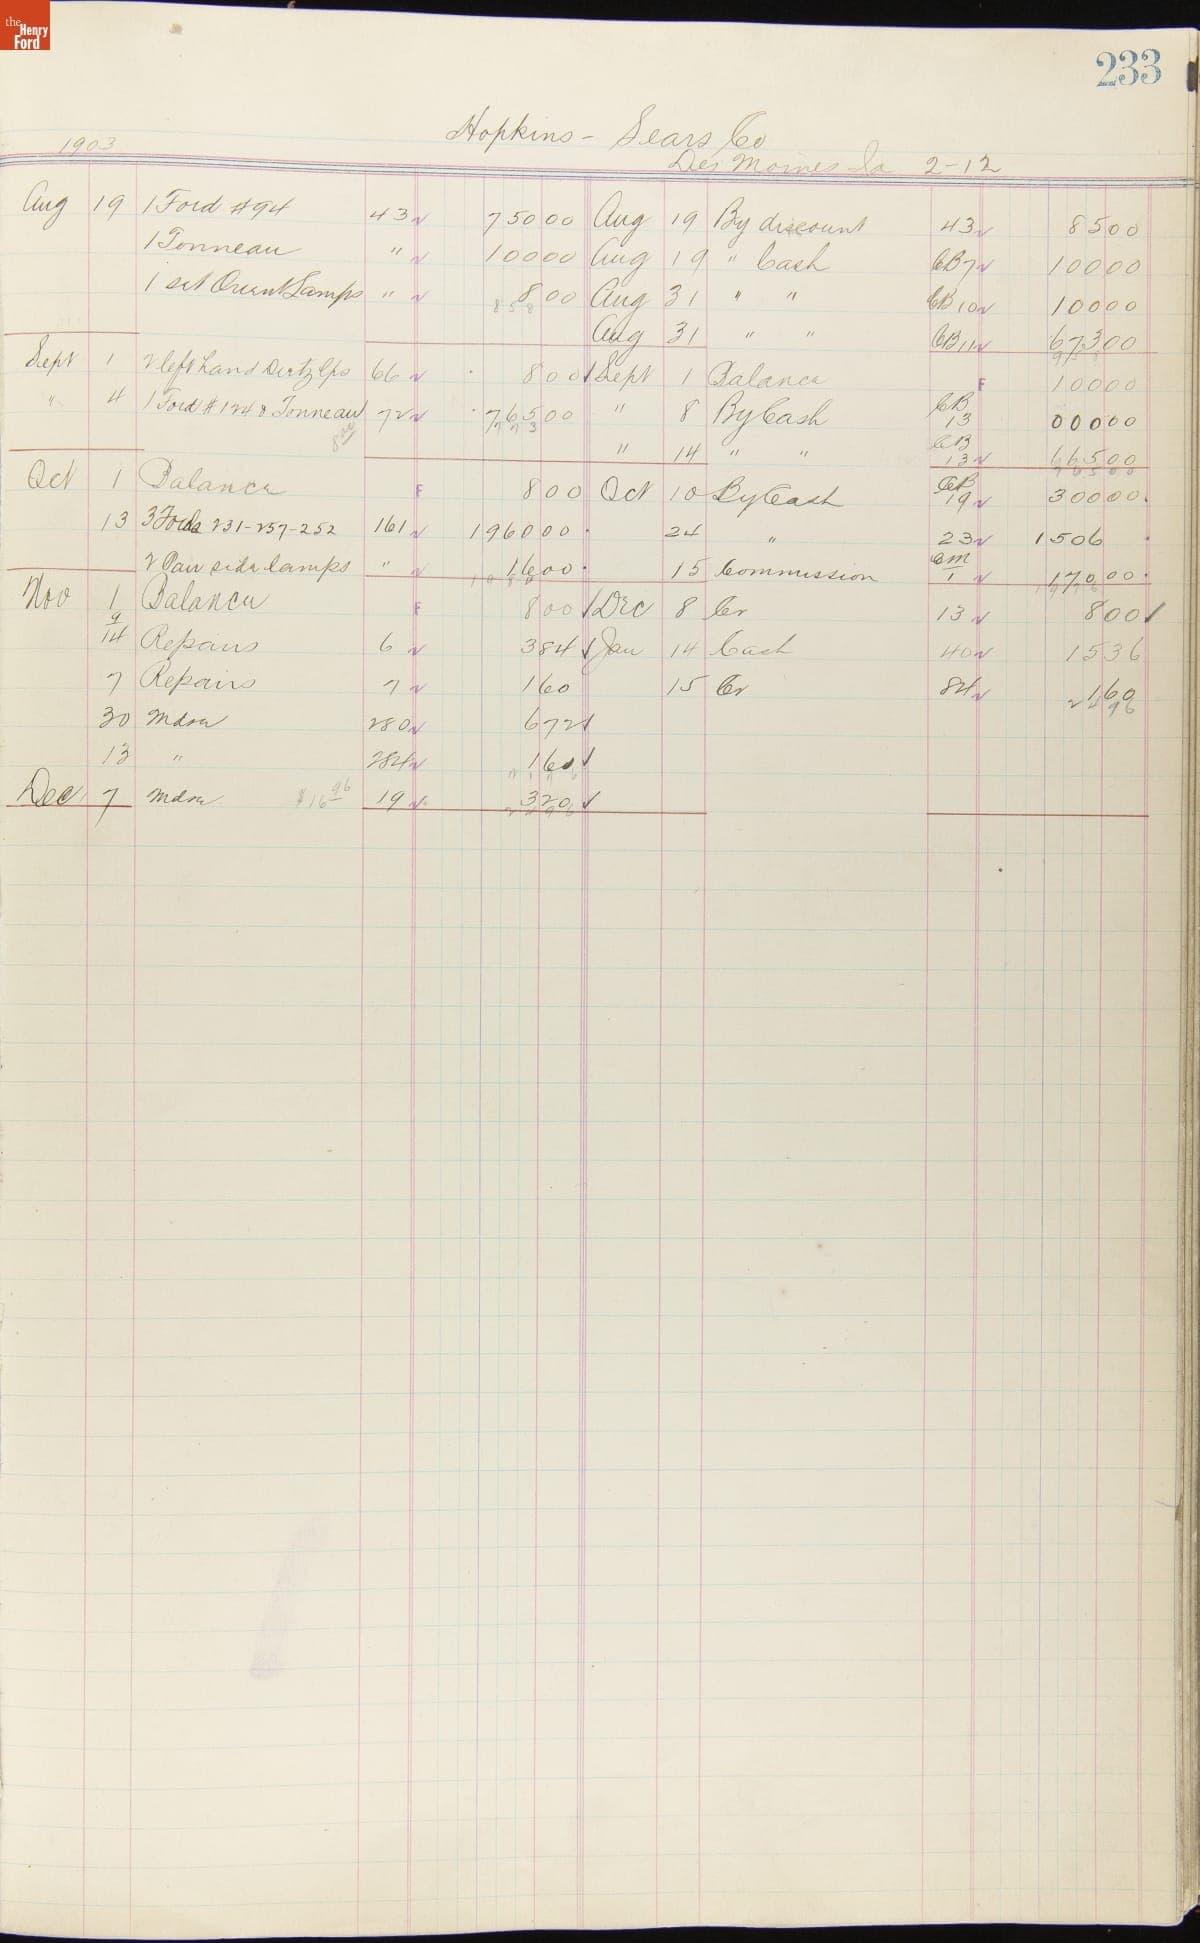 the Henry Ford
233
Hopkins - Sears Co
1903
Des Moines Ia 2-12
Aug 19 1 Ford #94 43 750 00 Aug 19 By discount 43 85 00
1 Tonneau " 100 00 Aug 19 " Cash CB7 100 00
1 set Lamps " 8 00 Aug 31 " " CB10 100 00
858
Aug 31 " " CB11 673 00
Sept 1 2 left hand Dietz Lps 66 8 00 Sept 1 Balance F 100 00
" 4 1 Ford #124 & Tonneau 72 765 00 " 8 By Cash CB 13 000 00
773
8 00
" 14 " " CB 13 665 00
765 00
Oct 1 Balance F 8 00 Oct 10 By Cash CB 19 300 00
13 3 Fords 231-257-252 161 1960 00 24 " 23 1506
2 Pair side lamps " 16 00 15 Commission CM 1 170 00
Nov 1 Balance F 8 00 Dec 8 Cr 13 8 00
9/14 Repairs 6 3 84 Jan 14 Cash 40 15 36
7 Repairs 7 1 60 15 Cr 84 1 60
24 96
30 Mdse 280 6 72
13 " 284 1 60
Dec 7 Mdse $16 96 19 3 20
24 96